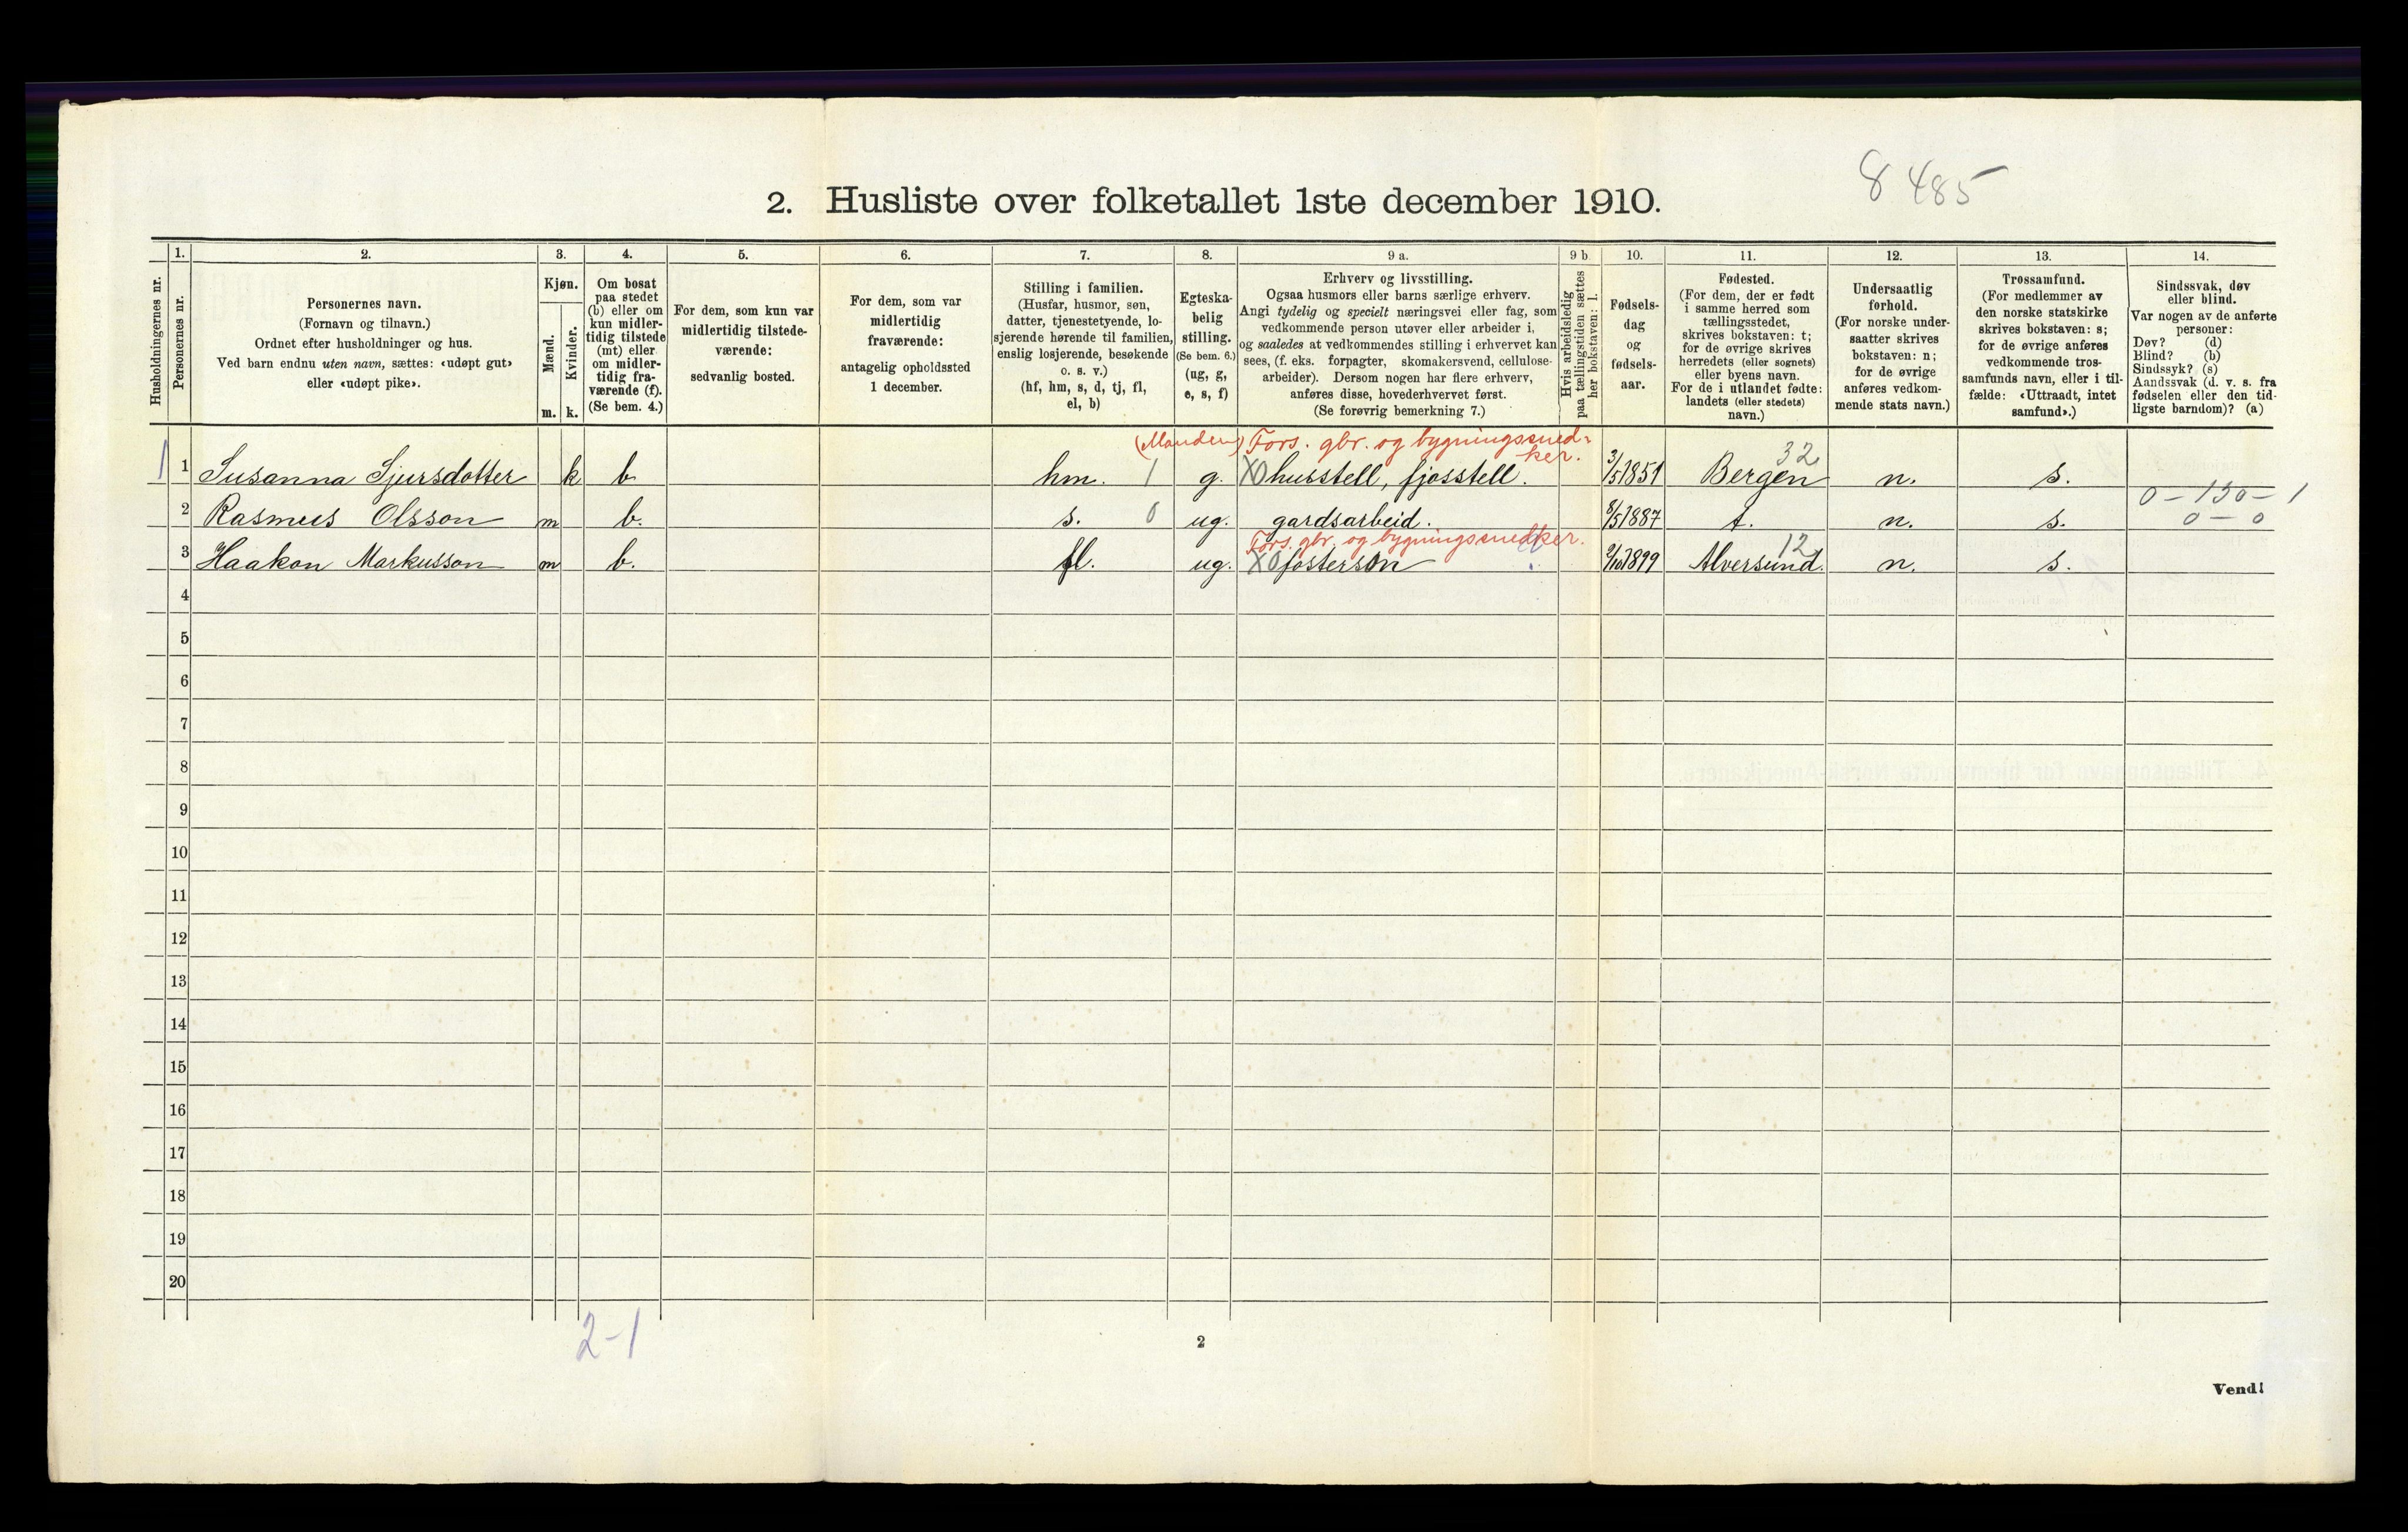 8 485
2. Husliste over folketallet 1ste december 1910.
Husholdningernes nr.
1.
Personernes nr.
2.
Personernes navn.
(Fornavn og tilnavn.)
Ordnet efter husholdninger og hus.
Ved barn endnu uten navn, sættes: «udøpt gut»
eller «udøpt pike».
3.
Kjøn.
Mænd.
Kvinder.
m. k.
4.
Om bosat
paa stedet
(b) eller om
kun midler-
tidig tilstede
(mt) eller
om midler-
tidig fra-
værende (f).
(Se bem. 4.)
5.
For dem, som kun var
midlertidig tilstede-
værende:
sedvanlig bosted.
6.
For dem, som var
midlertidig
fraværende:
antagelig opholdssted
1 december.
7.
Stilling i familien.
(Husfar, husmor, søn,
datter, tjenestetyende, lo-
sjerende hørende til familien,
enslig losjerende, besøkende
o. s. v.)
(hf, hm, s, d, tj, fl,
el, b)
8.
Egteska-
belig
stilling.
(Se bem. 6.)
(ug, g,
e, s, f)
9 a.
Erhverv og livsstilling.
Ogsaa husmors eller barns særlige erhverv.
Angi tydelig og specielt næringsvei eller fag, som
vedkommende person utøver eller arbeider i,
og saaledes at vedkommendes stilling i erhvervet kan
sees, (f. eks. forpagter, skomakersvend, cellulose-
arbeider). Dersom nogen har flere erhverv,
anføres disse, hovederhvervet først.
(Se forøvrig bemerkning 7.)
9 b
Hvis arbeidsledig
paa tællingstiden sættes
her bokstaven: l.
10.
Fødsels-
dag
og
fødsels-
aar.
11.
Fødested.
(For dem, der er født
i samme herred som
tællingsstedet,
skrives bokstaven: t;
for de øvrige skrives
herredets (eller sognets)
eller byens navn.
For de i utlandet fødte:
landets (eller stedets)
navn.)
12.
Undersaatlig
forhold.
(For norske under-
saatter skrives
bokstaven: n;
for de øvrige
anføres vedkom-
mende stats navn.)
13.
Trossamfund.
(For medlemmer av
den norske statskirke
skrives bokstaven: s;
for de øvrige anføres
vedkommende tros-
samfunds navn, eller i til-
fælde: «Uttraadt, intet
samfund».)
14.
Sindssvak, døv
eller blind.
Var nogen av de anførte
personer:
Døv? (d)
Blind? (b)
Sindssyk? (s)
Aandssvak (d. v. s. fra
fødselen eller den tid-
ligste barndom)? (a)
(Manden) Fors. gbr. og bygningssned-
ker. 32
1 1 Susanna Sjursdotter k b hm. 1 g. X0 husstell, fjosstell. 3/5 1851 Bergen n. s.
0 - 130 - 1
2 Rasmus Olsson m b. s. 0 ug. gardsarbeid. 8/5 1887 t. n. s. 0 - 0
Fors. gbr. og bygningssnedker. 12
3 Haakon Markusson m b. fl. ug. X0 fosterson 1899 Alversund. n. s.
4
5
6
7
8
9
10
11
12
13
14
15
16
17
18
19
20
2-1
2
Vend!